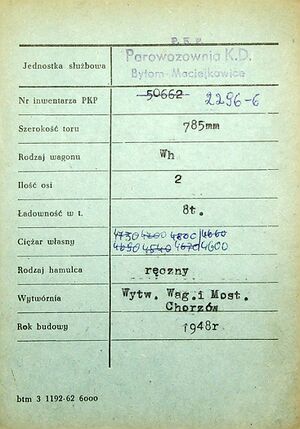 P. K. P.
Jednostka służbowa Parowozownia K.D.
Bytom-Maciejkowice
Nr inwentarza PKP 50662 2296-6
Szerokość toru 785mm
Rodzaj wagonu Wh
Ilość osi 2
Ładowność w t. 8t.
Ciężar własny 4730 4200 4800/4660
4650 4540 4670/4600
Rodzaj hamulca ręczny
Wytwórnia Wytw. Wag.i Most.
Chorzów
Rok budowy 1948r
btm 3 1192-62 6000